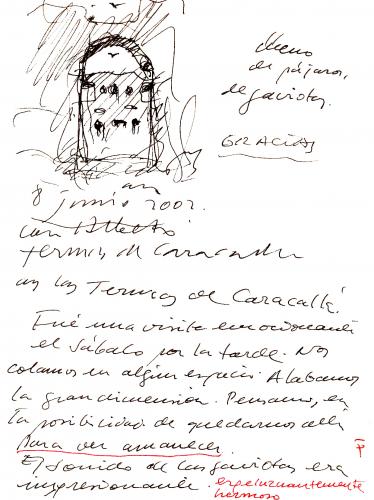 lleno
de pájaros,
de gaviotas.
GRACIAS
en
8 junio 2002.
con Alberto
termas de Caracalla
en las Termas de Caracalla.
Fué una visita emocionante
el sábado por la tarde. Nos
colamos en algún espacio. Alabamos
la gran dimensión. Pensamos, en
la posibilidad de quedarnos allí
para ver amanecer.
El sonido de las gaviotas era
impresionante. espeluznantemente
hermoso